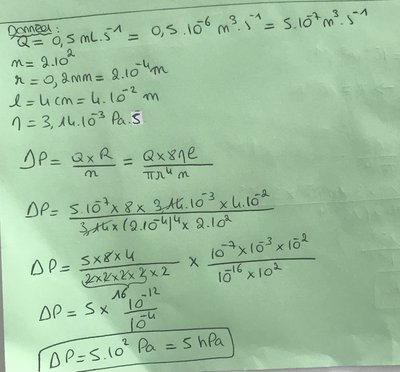 Données :
Q = 0,5 mL.s⁻¹ = 0,5.10⁻⁶ m³.s⁻¹ = 5.10⁻⁷ m³.s⁻¹
n = 2.10²
r = 0,2mm = 2.10⁻⁴ m
l = 4cm = 4.10⁻² m
η = 3,14.10⁻³ Pa.S
ΔP = Q×R / n = Q×8ηl / πr⁴n
ΔP = 5.10⁻⁷ × 8 × 3,14.10⁻³ × 4.10⁻² / 3,14 × (2.10⁻⁴)⁴ × 2.10²
ΔP = 5×8×4 / 2×2×2×2×2 × 10⁻⁷×10⁻³×10⁻² / 10⁻¹⁶×10²
16
ΔP = 5 × 10⁻¹² / 10⁻⁴
ΔP = 5.10² Pa = 5 hPa